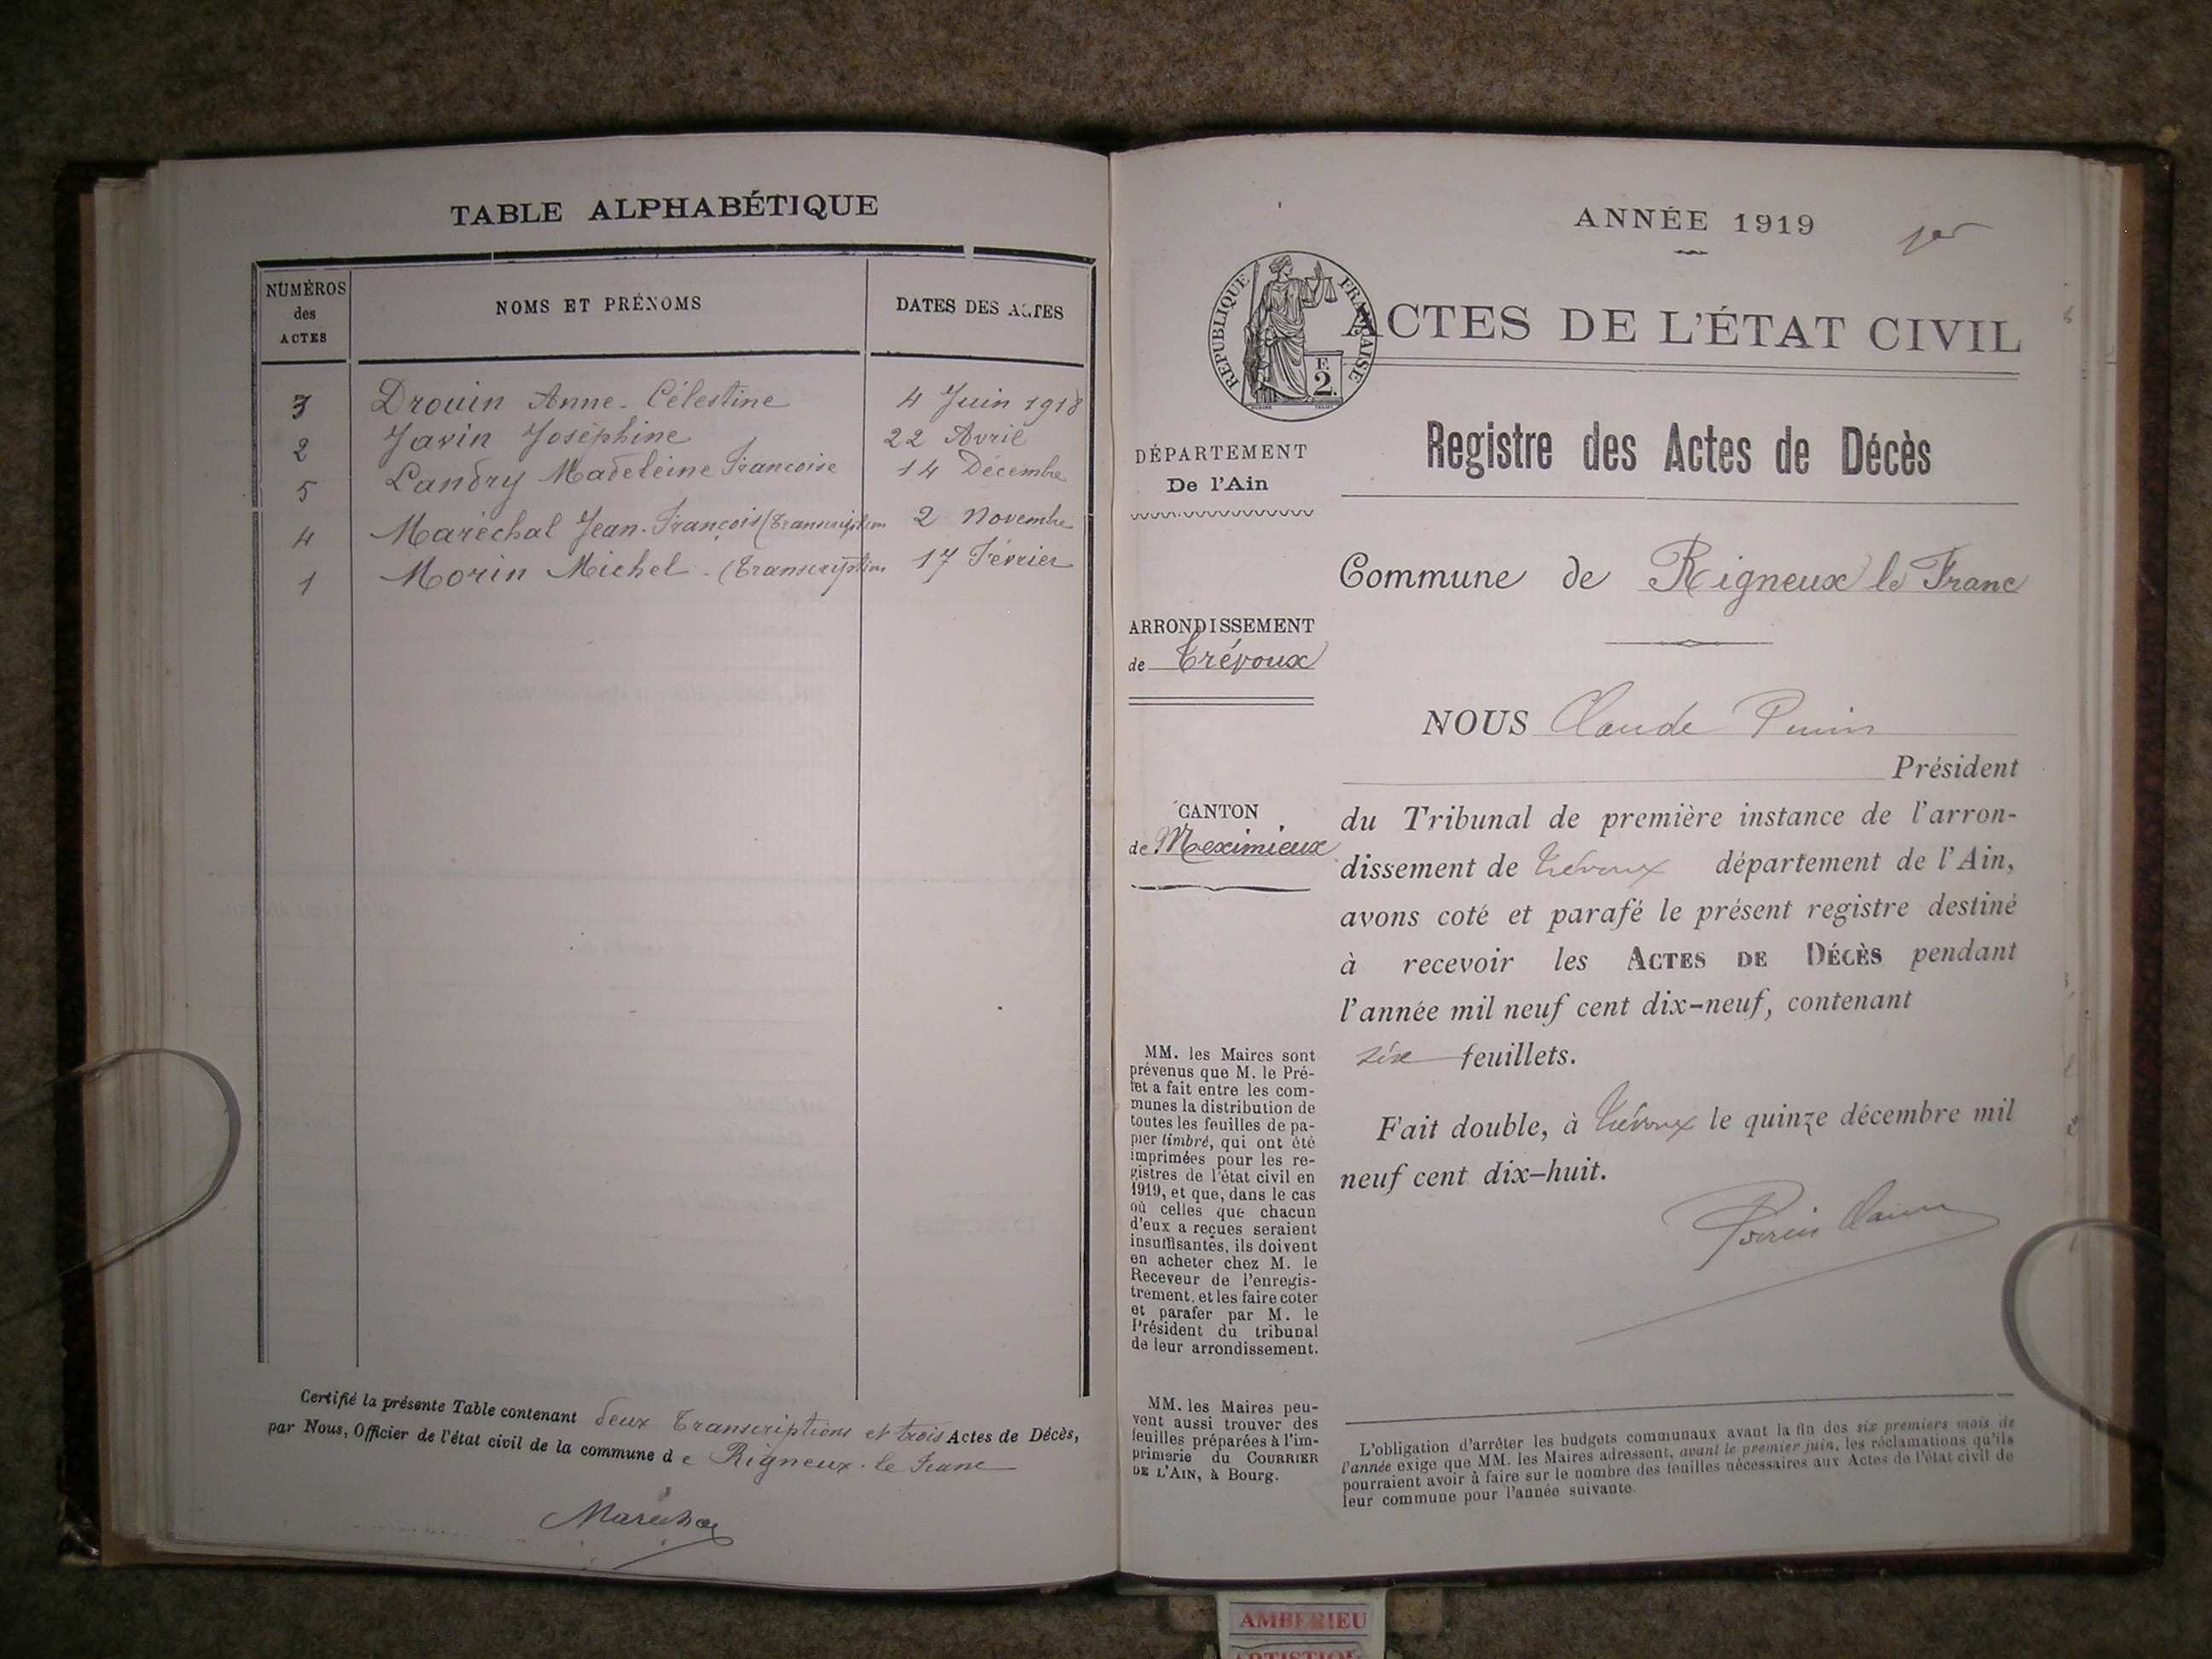 TABLE ALPHABÉTIQUE
NUMÉROS
des
ACTES
NOMS ET PRÉNOMS
DATES DES ACTES
3 Drouin Anne-Célestine 4 Juin 1918
2 Javin Joséphine 22 Avril
5 Landry Madeleine Francoise 14 Décembre
4 Maréchal Jean-François (Transcription 2 Novembre
1 Morin Michel - (Transcription 17 Février
Certifié la présente Table contenant deux Transcriptions et trois Actes de Décès,
par Nous, Officier de l'état civil de la commune de Rigneux-le-Franc
Maréchal
ANNÉE 1919
1er
RÉPUBLIQUE FRANÇAISE
F.
2.
ACTES DE L'ÉTAT CIVIL
DÉPARTEMENT
De l'Ain
Registre des Actes de Décès
Commune de Rigneux le Franc
ARRONDISSEMENT
de Trévoux
CANTON
de Meximieux
MM. les Maires sont
prévenus que M. le Pré-
fet a fait entre les com-
munes la distribution de
toutes les feuilles de pa-
pier timbré, qui ont été
imprimées pour les re-
gistres de l'état civil en
1919, et que, dans le cas
où celles que chacun
d'eux a reçues seraient
insuffisantes, ils doivent
en acheter chez M. le
Receveur de l'enregis-
trement, et les faire coter
et parafer par M. le
Président du tribunal
de leur arrondissement.
MM. les Maires peu-
vent aussi trouver des
feuilles préparées à l'im-
primerie du COURRIER
DE L'AIN, à Bourg.
NOUS Claude
Président
du Tribunal de première instance de l'arron-
dissement de Trévoux département de l'Ain,
avons coté et parafé le présent registre destiné
à recevoir les ACTES DE DÉCÈS pendant
l'année mil neuf cent dix-neuf, contenant
six feuillets.
Fait double, à Trévoux le quinze décembre mil
neuf cent dix-huit.
L'obligation d'arrêter les budgets communaux avant la fin des six premiers mois de
l'année exige que MM. les Maires adressent, avant le premier juin, les réclamations qu'ils
pourraient avoir à faire sur le nombre des feuilles nécessaires aux Actes de l'état civil de
leur commune pour l'année suivante.
AMBERIEU